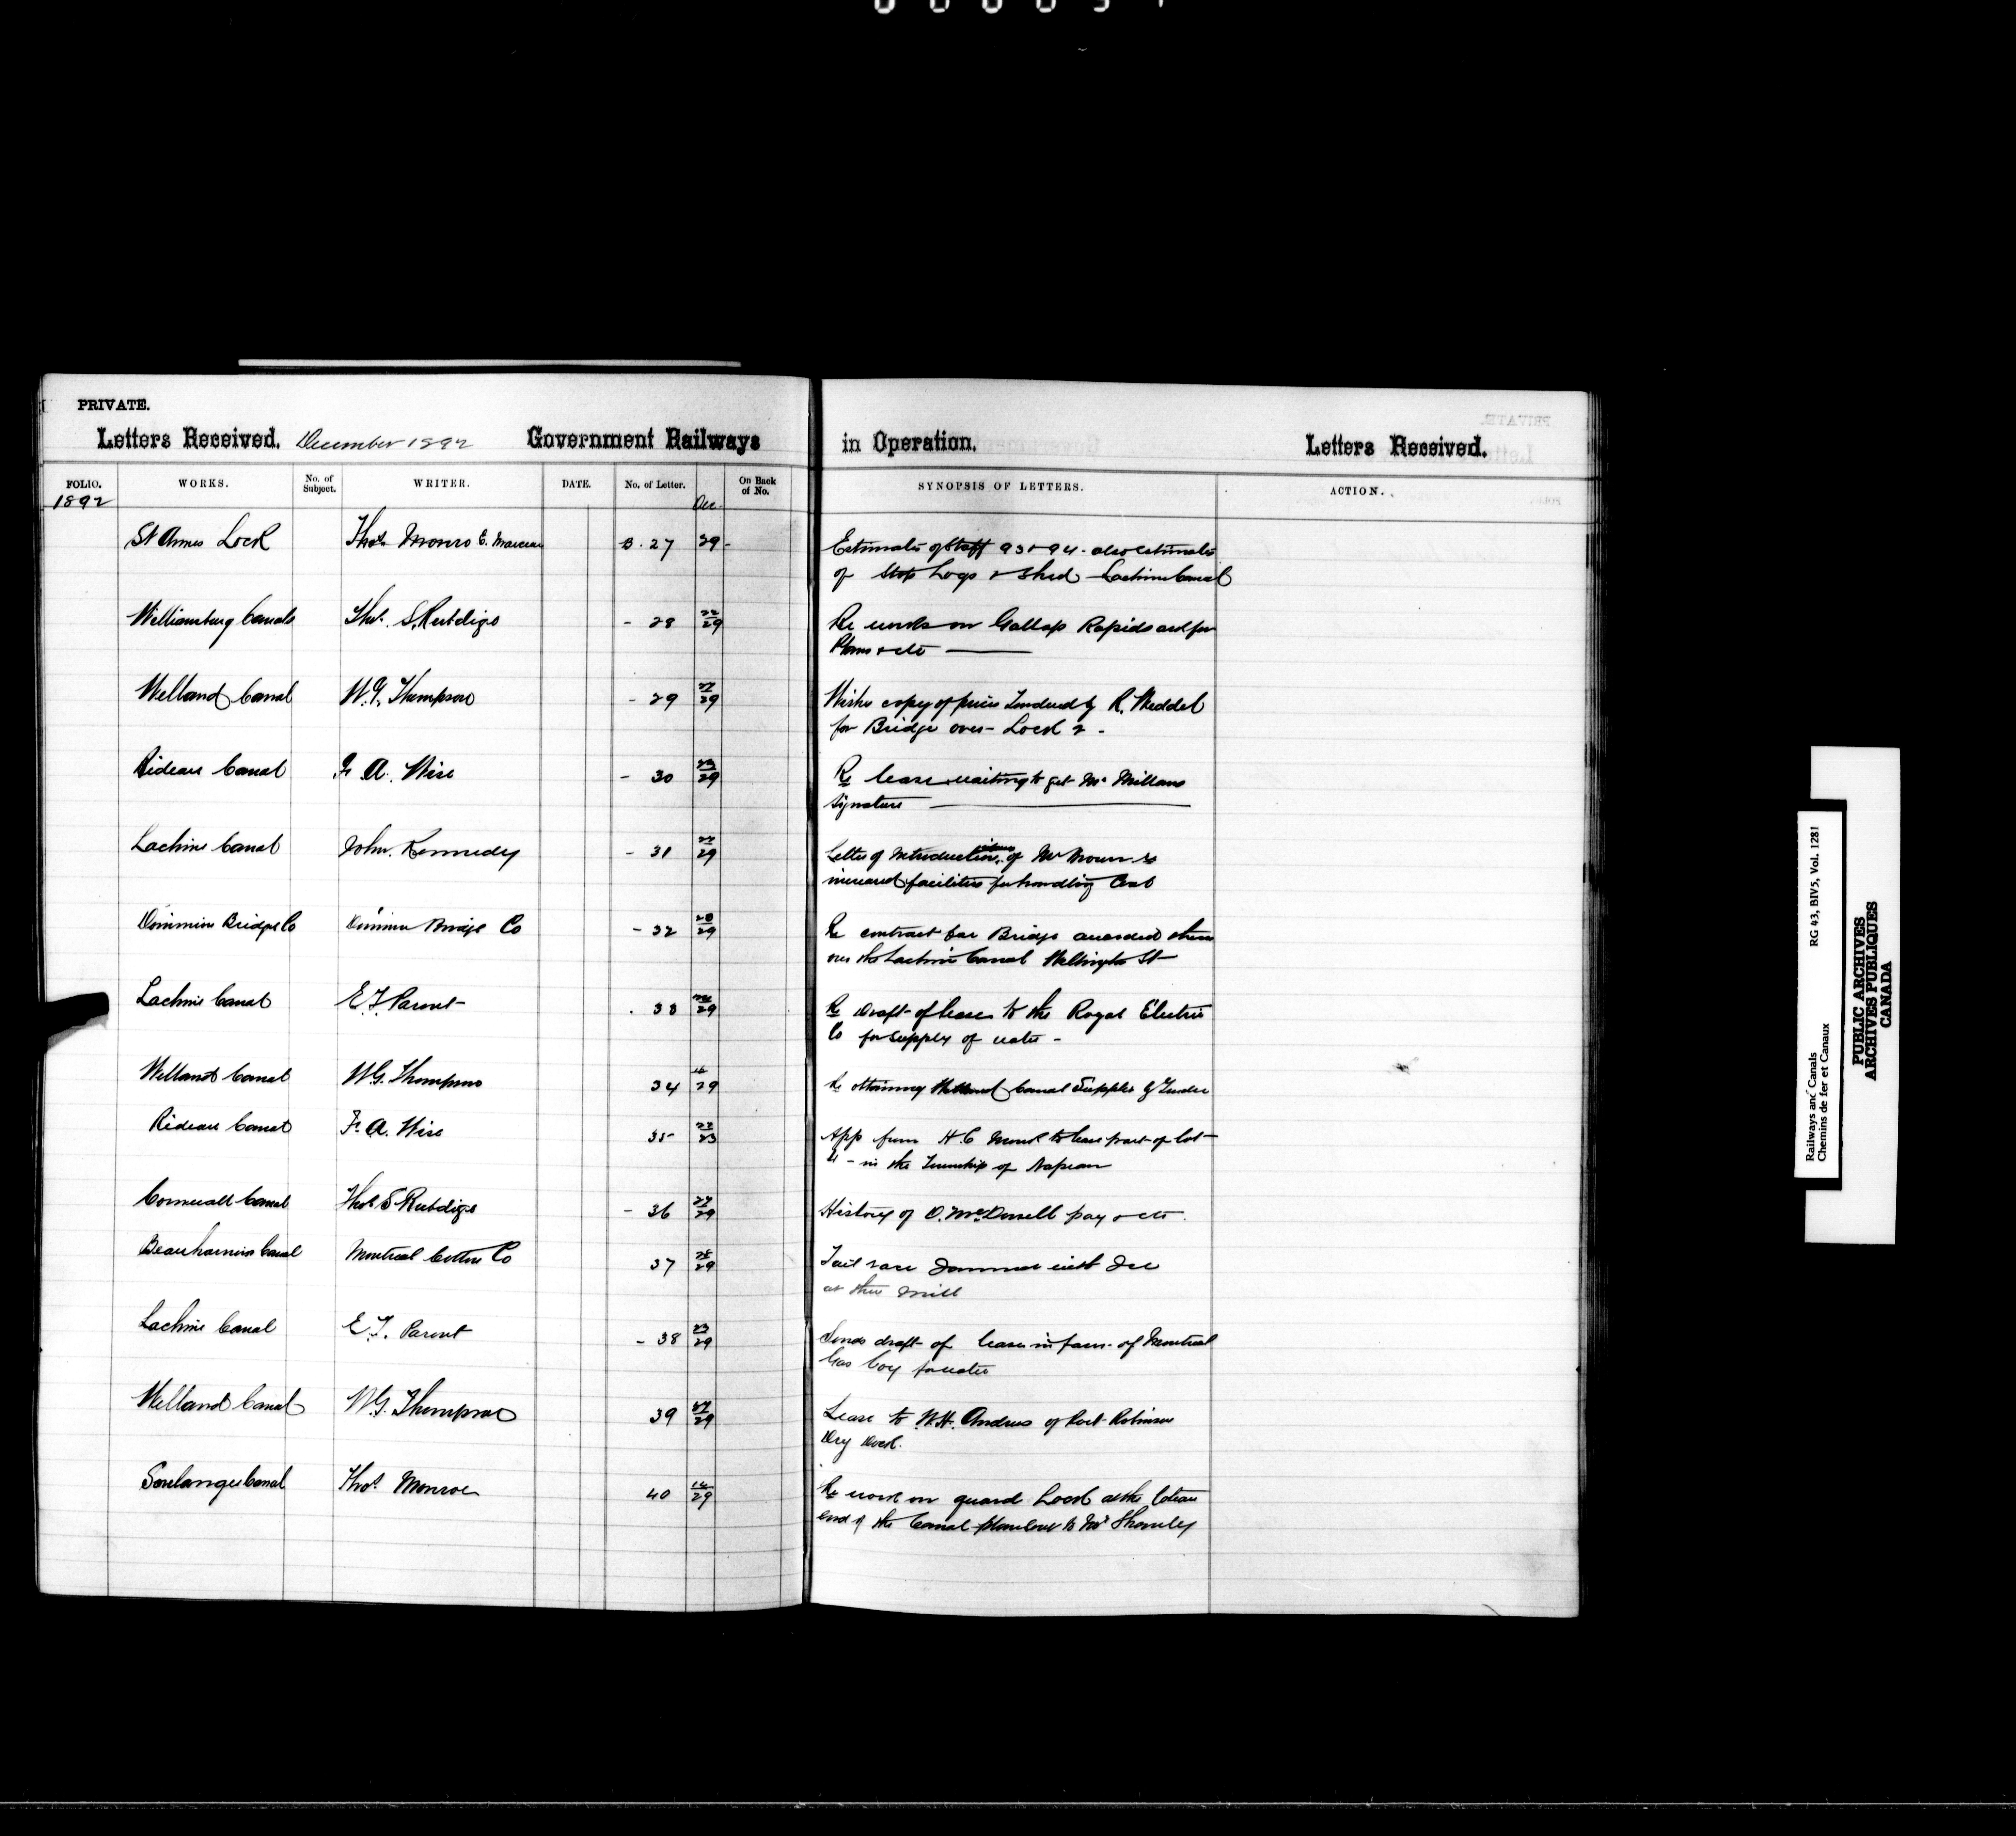 PRIVATE.
Letters Received. December 1892 Government Railways in Operation. Letters Received.
FOLIO. WORKS. No. of Subject. WRITER. DATE. No. of Letter. On Back of No. SYNOPSIS OF LETTERS. ACTION.
1892 Dec.
St Annes Lock Thos Monro E. Marceau B. 27 29 - Estimates of Staff 93 & 94 - also estimates
of Stop Logs & Shed - Lachine Canal
Williamsburg Canals Thos. S. Rubidge - 28 22/29 Re work on Gallop Rapids and for
Plans & etc
Welland Canal W.G. Thompson - 29 27/29 Wishes copy of prices Tendered by R. Weddel
for Bridge over - Lock 2 -
Rideau Canal F. A. Wise - 30 23/29 Re lease waiting to get Mc Millans
signature
Lachine Canal John. Kennedy - 31 27/29 Letter of Introduction of Mr re
increased facilities for handling Coal
Dominion Bridge Co Dominion Bridge Co - 32 28/29 Re contract for Bridge awarded them
over the Lachine Canal Wellington St
Lachine Canal E.T. Parent . 33 29 Re Draft - of lease to the Royal Electric
Co for supply of water -
Welland Canal W.G. Thompson 34 29 Re obtaining Welland Canal Supplies by Tender
Rideau Canal F. A. Wise 35 23 App from H. C. Monk to lease part of lot
in the Township of Napean
Cornwall Canal Thos S Rubidge - 36 27/29 History of D. McDonell pay & etc.
Beauharnois Canal Montreal Cotton Co 37 28/29 Tail race Jammed with Ice
at their Mill
Lachine Canal E. T. Parent - 38 23/29 Sends draft - of lease in favr. of Montreal
Gas Coy for water
Welland Canal W.G. Thompson 39 27/29 Lease to W.H. Andrus of Port Robinson
Dry Dock.
Soulanges Canal Thos. Monroe 40 14/29 Re work on guard Lock at the Coteau
end of the Canal - plan sent to Mr Shanly
Railways and Canals RG 43, BIV5, Vol. 1281
Chemins de fer et Canaux
PUBLIC ARCHIVES
ARCHIVES PUBLIQUES
CANADA